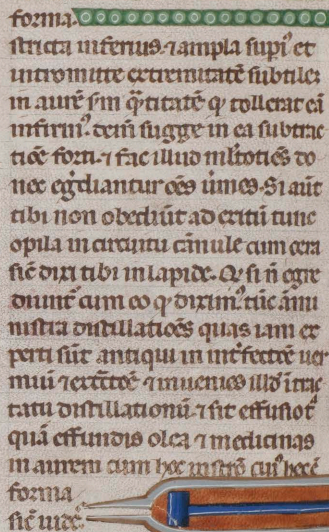 forma.
stricta inferius ⁊ ampla supi⁹ et
intromitte extremitatē subtilez
in aurē ẜm q̄titatē q̇ tollerat eā
infirm⁹. dein̄ sugge in ea subtrac
tiōe forti ⁊ fac illud m̄ltotiēs do
nec eḡdiantur oēs v̄mes. Si aūt
tibi non obediūt ad exitū tunc
opila in circuitu cānule cum cera
sic̄ dixi tibi in lapide. Qz si n̄ egre
diunt᷑ cum eo q̇ dixim⁹ tūc āmi
nistra distillatiōēs quas iam ex
perti sūt antiqui in int᷑fectōe ver
miū ⁊
tatu distillationū ⁊ sit effusio
quā effundis olea ⁊ medicinas
in aurem cum hoc instrō cui⁹ hec ē
forma
sic̄ vides.